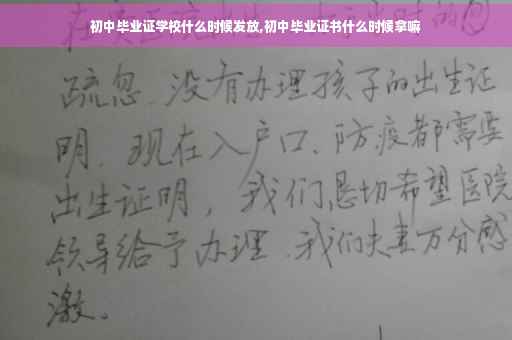 初中毕业证学校什么时候发放,初中毕业证书什么时候拿嘛
疏忽.没有办理孩子的出生证
明.现在入户口、防疫都需要
出生证明,我们恳切希望医院
领导给予办理.我们夫妻万分感
激。